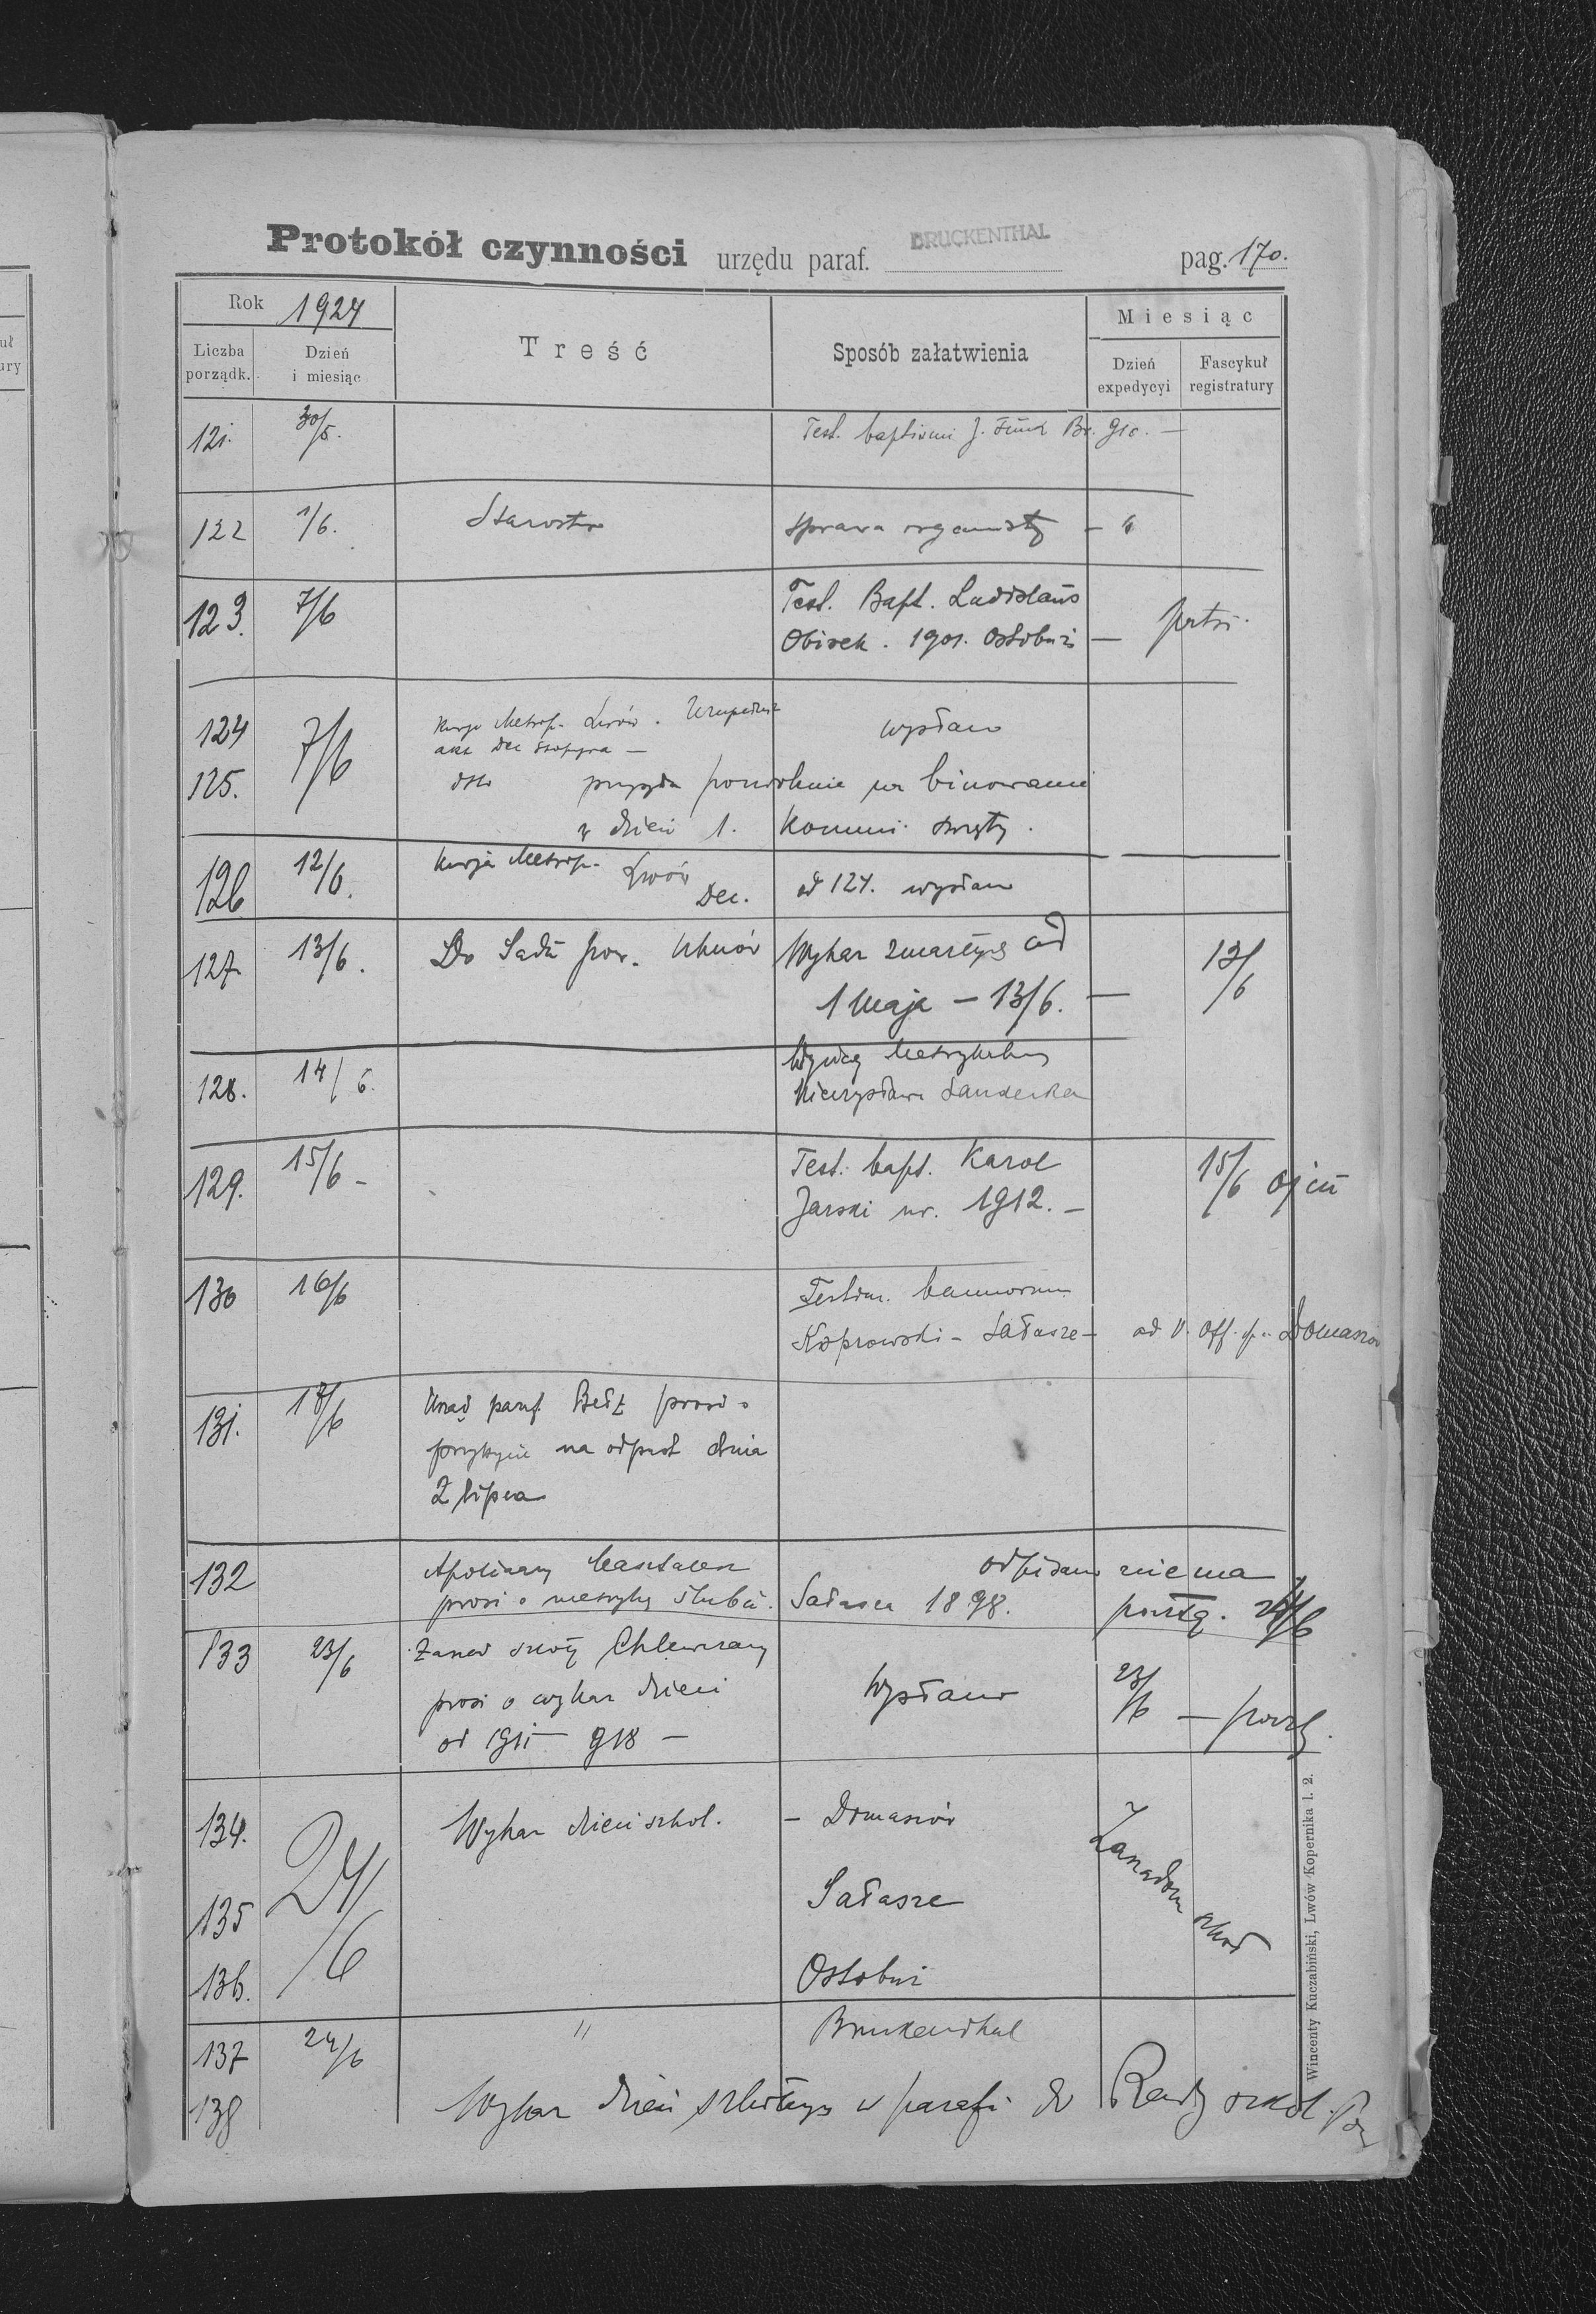 Protokół czynności urzędu paraf. BRUCKENTHAL pag. 170.
Rok 1924
Liczba porządk.
Dzień i miesiąc
Treść
Sposób załatwienia
Miesiąc
Dzień expedycyi
Fascykuł registratury
121. 30/5. Test. baptismi J. Br. 910. —
122 1/6. Starostwo sprawa organisty —
123. 7/6 Test. Bapt. Ladislaus
Obirek. 1901. Ostobuż —
124 7/6 Kurja Metrop. Lwów. wysłano
akt Dec —
125. dtto pozwolenie na binowanie
w dzień 1. Kommuni świętej.
126 12/6. Kurja Metrop. Lwów
Dec. ad 124. wysłano
127 13/6. Do Sądu pow. Uhnów Wykaz zmarłych od 13/6
1 maja — 13/6. —
128. 14/6. Wyciąg Metrykalny
Mieczysława
129. 15/6 — Test. bapt. Karol 15/6 ojcu
Jarski ur. 1912. —
130 16/6 Testim. bannorum
Koprowski — Sałasze — ad V. Off. p. Domaszów
131. 17/6 Urząd paraf. Bełz prosi o
przybycie na odpust dnia
2 lipca
132 Apolinary odpisano niema
prosi o metrykę ślubu. Sałasze 1898. pocztą. 24/6
133 23/6 Zarząd szkoły Chlewczany
prosi o wykaz dzieci wysłano 23/6 — pocztą.
od 1911 — 918 —
134. 24/6 Wykaz dzieci szkol. — Domaszów Zarządom szkół
135 Sałasze
136. Ostobuż
137 24/6 " Brukenthal
138 Wykaz dzieci szkolnych w parafi do Rady szkol. Pow
Wincenty Kuczabiński, Lwów Kopernika l. 2.